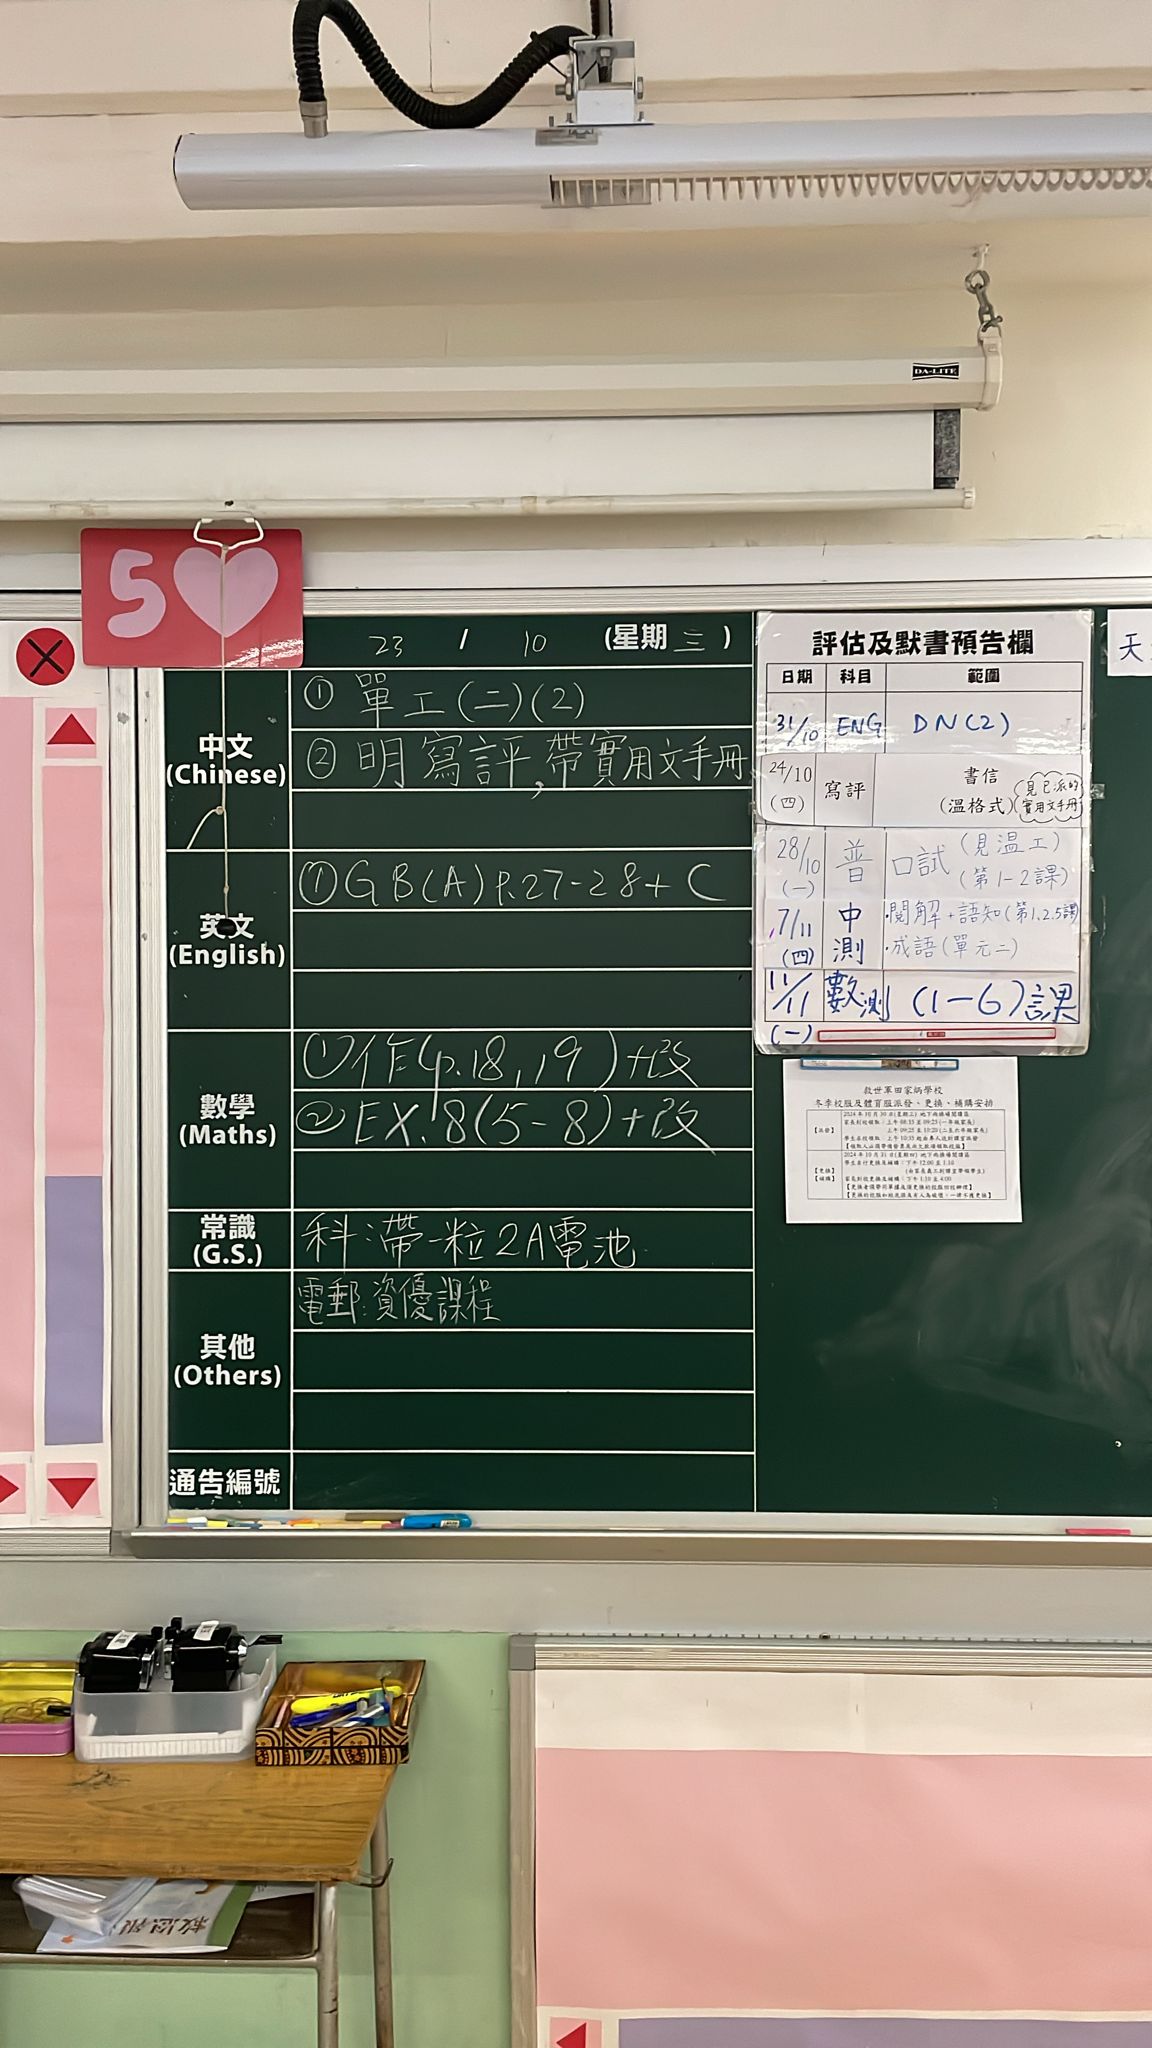 DA-LITE
5
23 / 10 (星期 三 )
中文
(Chinese)
① 單工(二)(2)
② 明寫評,帶實用文手冊
英文
(English)
① GB(A) P.27-28 + C
數學
(Maths)
① 作(p.18, 19) + 改
② EX. 8(5-8) + 改
常識
(G.S.)
科:帶一粒2A電池
其他
(Others)
電郵:資優課程
通告編號
評估及默書預告欄
日期 科目 範圍
31/10 ENG DN(2)
24/10 (四) 寫評 書信 (溫格式) 見已派的實用文手冊
28/10 (一) 普 口試 (見溫工) (第1-2課)
7/11 (四) 中測 ·閱解+語知(第1,2,5課)
·成語(單元二)
11/11 (一) 數測 (1-6)課
天
救世軍田家炳學校
冬季校服及體育服派發、更換、補購安排
【派發】
2024年10月30日(星期三) 地下雨操場閱讀區
2024年10月31日(星期四) 地下雨操場閱讀區
【更換】
【補購】